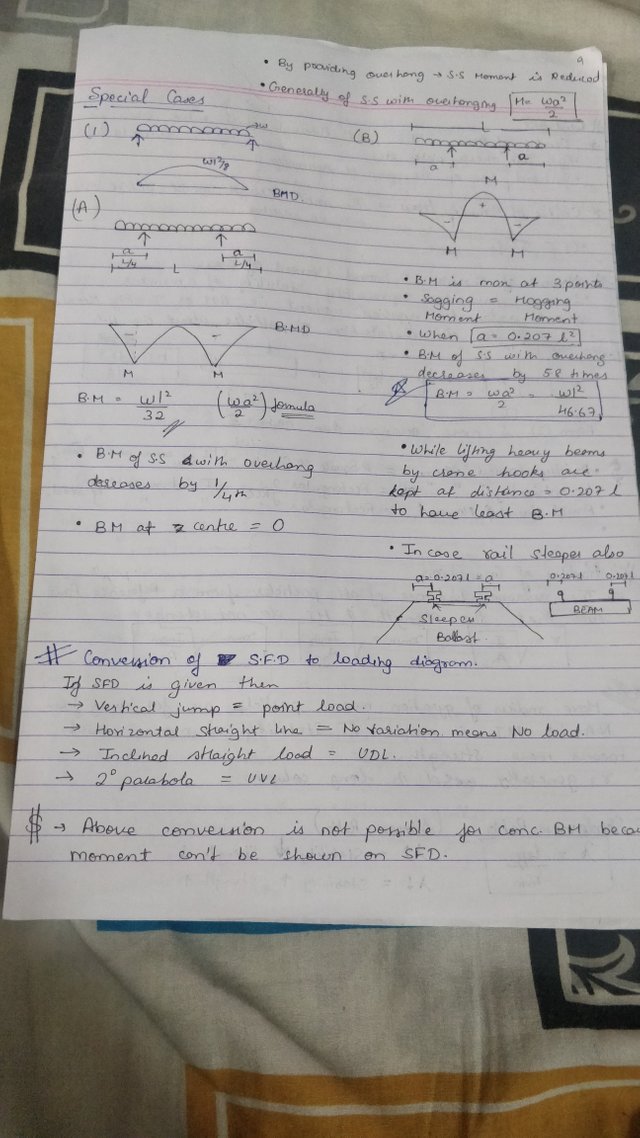 9
• By providing overhang → S.S Moment is Reduced
• Generally of S.S with overhanging M = wa²/2
Special Cases
(1)
w
wl²/8
BMD
(A)
a
L/4
L
a
L/4
BMD
M
M
B.M = wl²/32 (wa²/2) formula
• B.M of S.S with overhang
decreases by 1/4th
• BM at centre = 0
(B)
L
a
a
M
+
-
-
M
M
• B.M is man. at 3 points
• Sagging = Hogging
Moment Moment
• When a = 0.207 l²
• B.M of S.S with overhang
decreases by 5.8 times
B.M = wa²/2 = wl²/46.67
• While lifting heavy beams
by crane hooks are
kept at distance = 0.207 l
to have least B.M
• In case rail sleeper also
a = 0.207 l = a
0.207l
0.207l
Sleeper
Ballast
BEAM
# Conversion of S.F.D to loading diagram.
If SFD is given then
→ Vertical jump = point load.
→ Horizontal straight line = No variation means No load.
→ Inclined straight load = UDL.
→ 2° parabola = UVL
$ → Above conversion is not possible for conc. BM becau
moment can't be shown on SFD.